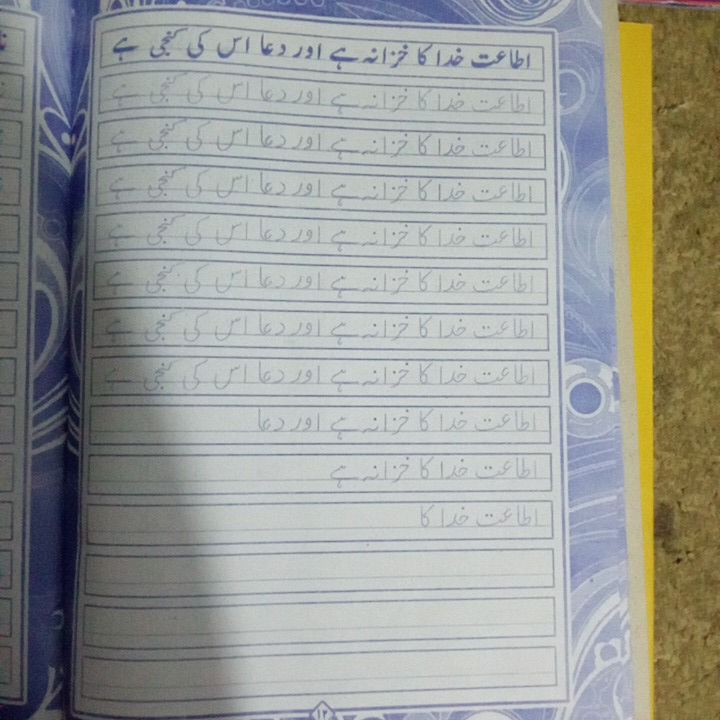 اطاعت خدا کا خزانہ ہے اور دعا اس کی کنجی ہے
اطاعت خدا کا خزانہ ہے اور دعا اس کی کنجی ہے
اطاعت خدا کا خزانہ ہے اور دعا اس کی کنجی ہے
اطاعت خدا کا خزانہ ہے اور دعا اس کی کنجی ہے
اطاعت خدا کا خزانہ ہے اور دعا اس کی کنجی ہے
اطاعت خدا کا خزانہ ہے اور دعا اس کی کنجی ہے
اطاعت خدا کا خزانہ ہے اور دعا اس کی کنجی ہے
اطاعت خدا کا خزانہ ہے اور دعا اس کی کنجی ہے
اطاعت خدا کا خزانہ ہے اور دعا
اطاعت خدا کا خزانہ ہے
اطاعت خدا کا
۱۲